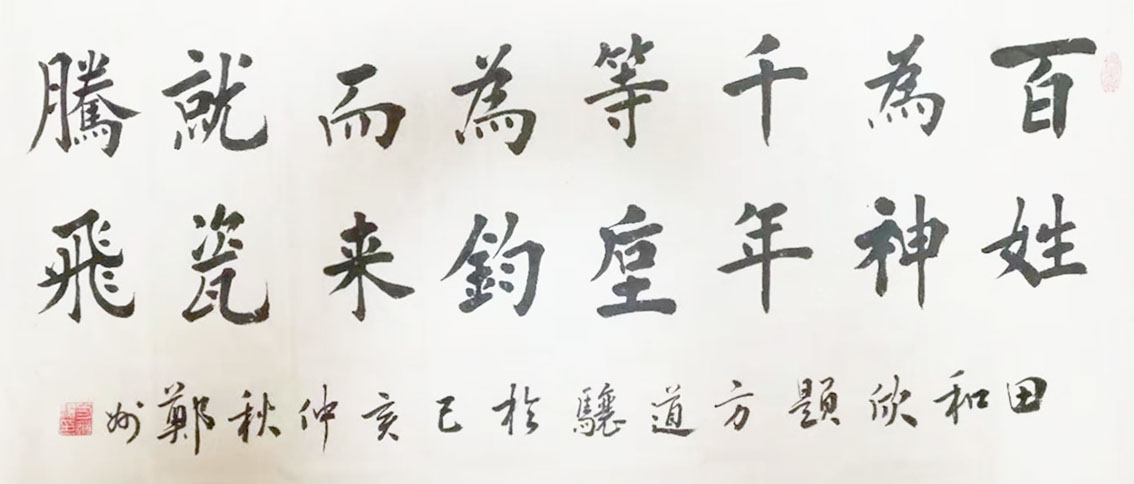 百姓
為神
千年
等垕
為鈞
而来
就瓷
騰飛
田和欣題方道驤於己亥仲秋鄭州